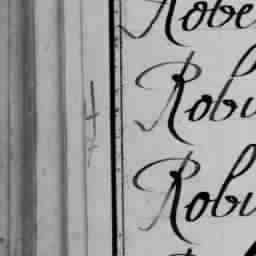 Robe
Robu
Robu